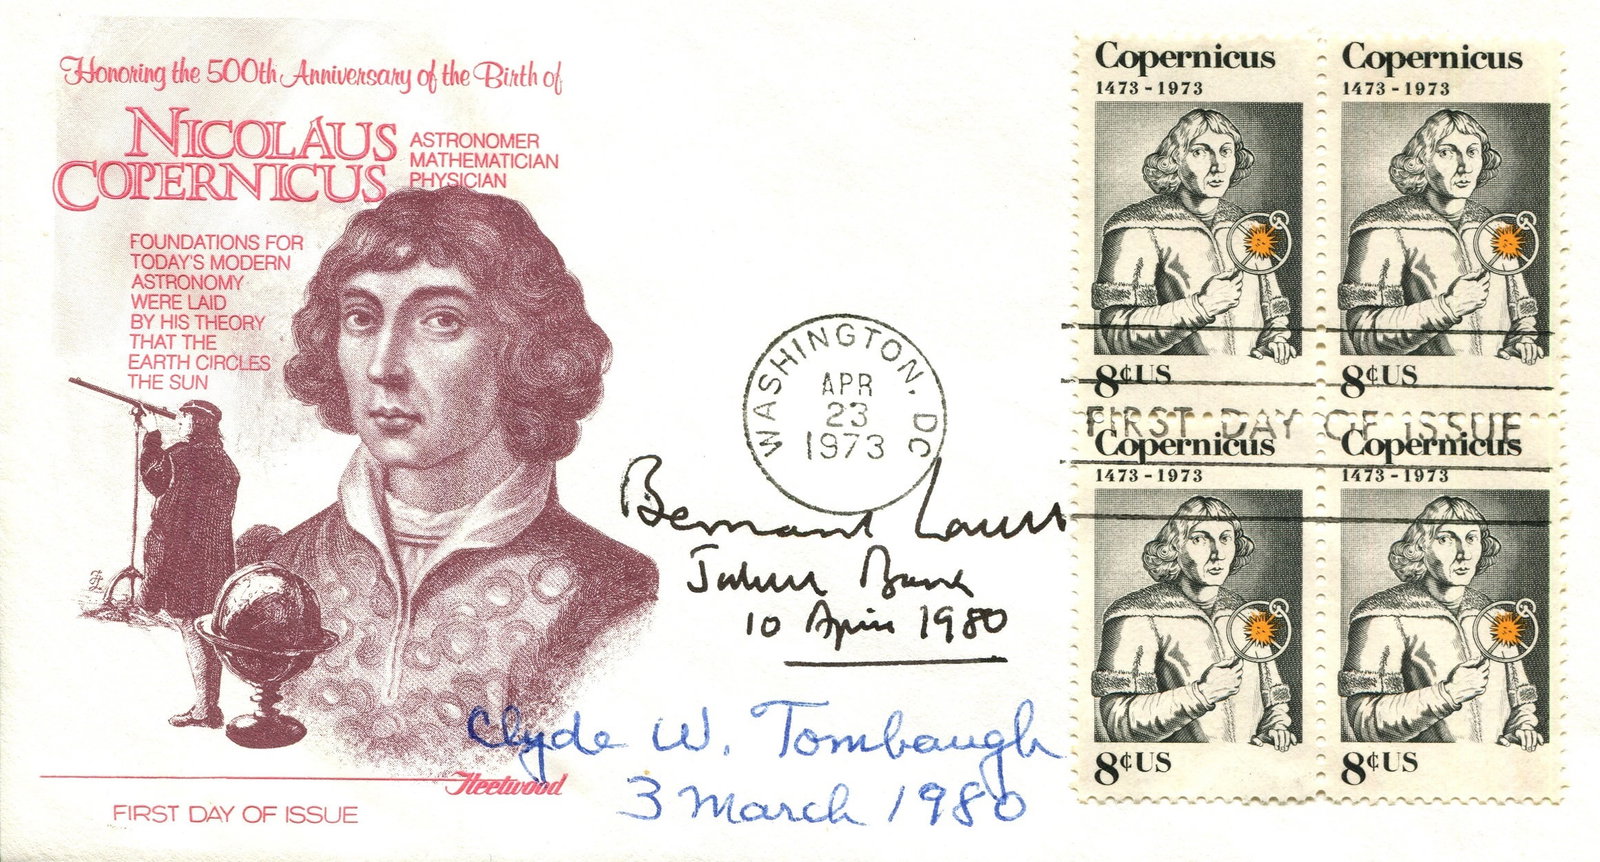 Honoring the 500th Anniversary of the Birth of
NICOLAUS
COPERNICUS
ASTRONOMER
MATHEMATICIAN
PHYSICIAN
FOUNDATIONS FOR
TODAY'S MODERN
ASTRONOMY
WERE LAID
BY HIS THEORY
THAT THE
EARTH CIRCLES
THE SUN
Fleetwood
FIRST DAY OF ISSUE
WASHINGTON, DC
APR
23
1973
Bernard
Bank
10 April 1980
Clyde W. Tombaugh
3 March 1980
Copernicus
1473-1973
8¢US
Copernicus
1473-1973
8¢US
FIRST DAY OF ISSUE
Copernicus
1473-1973
8¢US
Copernicus
1473-1973
8¢US